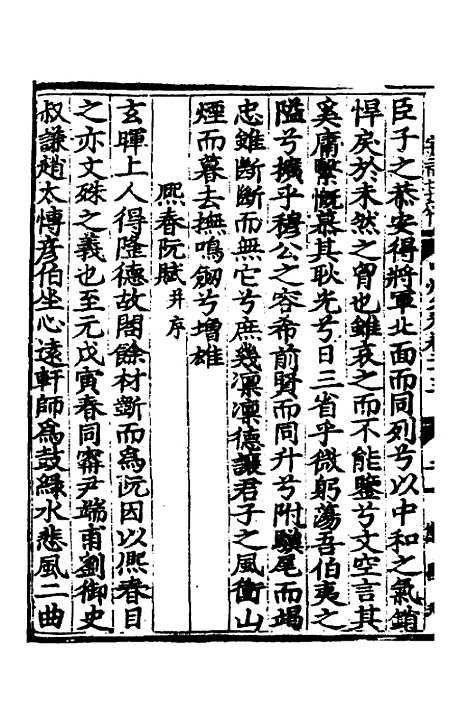 臣子之恭安得將軍北面而同列兮以中和之氣銷
悍戾於未然之胷也雖哀之而不能鑒兮文空言其
奚庸繄慨慕其耿光兮日三省乎微躬蕩吾伯夷之
隘兮擴乎穆公之容希前賢而同升兮附驥尾而竭
忠雖斷斷而無它兮庶幾凛凛德讓君子之風衡山
煙而暮去撫鳴劒兮增雄
熈春阮賦并序
玄暉上人得隆德故閣餘材斵而爲阮因以熈春目
之亦文殊之義也至元戊寅春同寮尹端甫劉御史
叔謙趙太愽彦伯坐心遠軒師爲鼓緑水悲風二曲